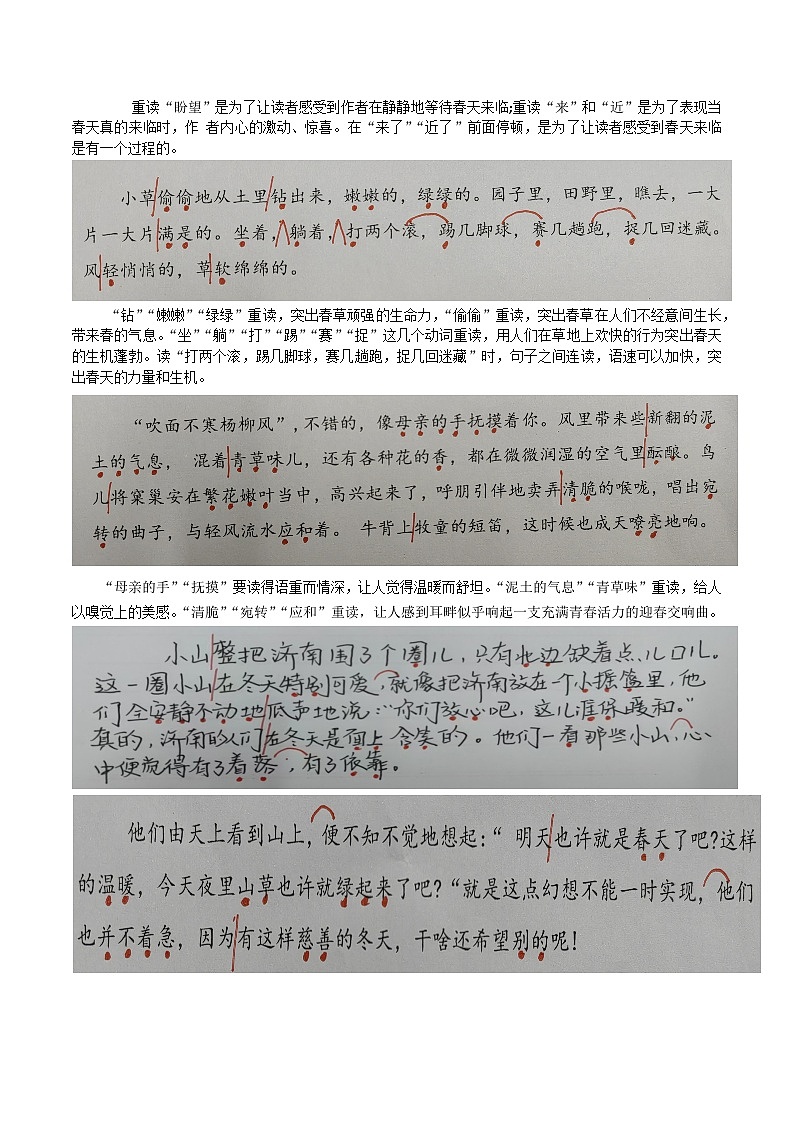 重读“盼望”是为了让读者感受到作者在静静地等待春天来临;重读“来”和“近”是为了表现当
春天真的来临时，作 者内心的激动、惊喜。在“来了”“近了”前面停顿，是为了让读者感受到春天来临
是有一个过程的。
小草偷偷地从土里钻出来，嫩嫩的，绿绿的。园子里，田野里，瞧去，一大
片一大片满是的。坐着，躺着，打两个滚，踢几脚球，赛几趟跑，捉几回迷藏。
风轻悄悄的，草软绵绵的。
“钻”“嫩嫩”“绿绿”重读，突出春草顽强的生命力，“偷偷”重读，突出春草在人们不经意间生长，
带来春的气息。“坐”“躺”“打”“踢”“赛”“捉”这几个动词重读，用人们在草地上欢快的行为突出春天
的生机蓬勃。读“打两个滚，踢几脚球，赛几趟跑，捉几回迷藏”时，句子之间连读，语速可以加快，突
出春天的力量和生机。
“吹面不寒杨柳风”，不错的，像母亲的手抚摸着你。风里带来些新翻的泥
土的气息， 混着青草味儿，还有各种花的香，都在微微润湿的空气里酝酿。鸟
儿将窠巢安在繁花嫩叶当中，高兴起来了，呼朋引伴地卖弄清脆的喉咙，唱出宛
转的曲子，与轻风流水应和着。 牛背上牧童的短笛，这时候也成天嘹亮地响。
“母亲的手”“抚摸”要读得语重而情深，让人觉得温暖而舒坦。“泥土的气息”“青草味”重读，给人
以嗅觉上的美感。“清脆”“宛转”“应和”重读，让人感到耳畔似乎响起一支充满青春活力的迎春交响曲。
小山整把济南围了个圈儿，只有北边缺着点儿口儿。
这一圈小山在冬天特别可爱，就像把济南放在一个小摇篮里，他
们全安静不动地低声地说：“你们放心吧，这儿准保暖和。”
真的，济南的人们在冬天是面上含笑的。他们一看那些小山，心
中便觉得有了着落，有了依靠。
他们由天上看到山上，便不知不觉地想起：“ 明天也许就是春天了吧?这样
的温暖，今天夜里山草也许就绿起来了吧?“就是这点幻想不能一时实现，他们
也并不着急，因为有这样慈善的冬天，干啥还希望别的呢！